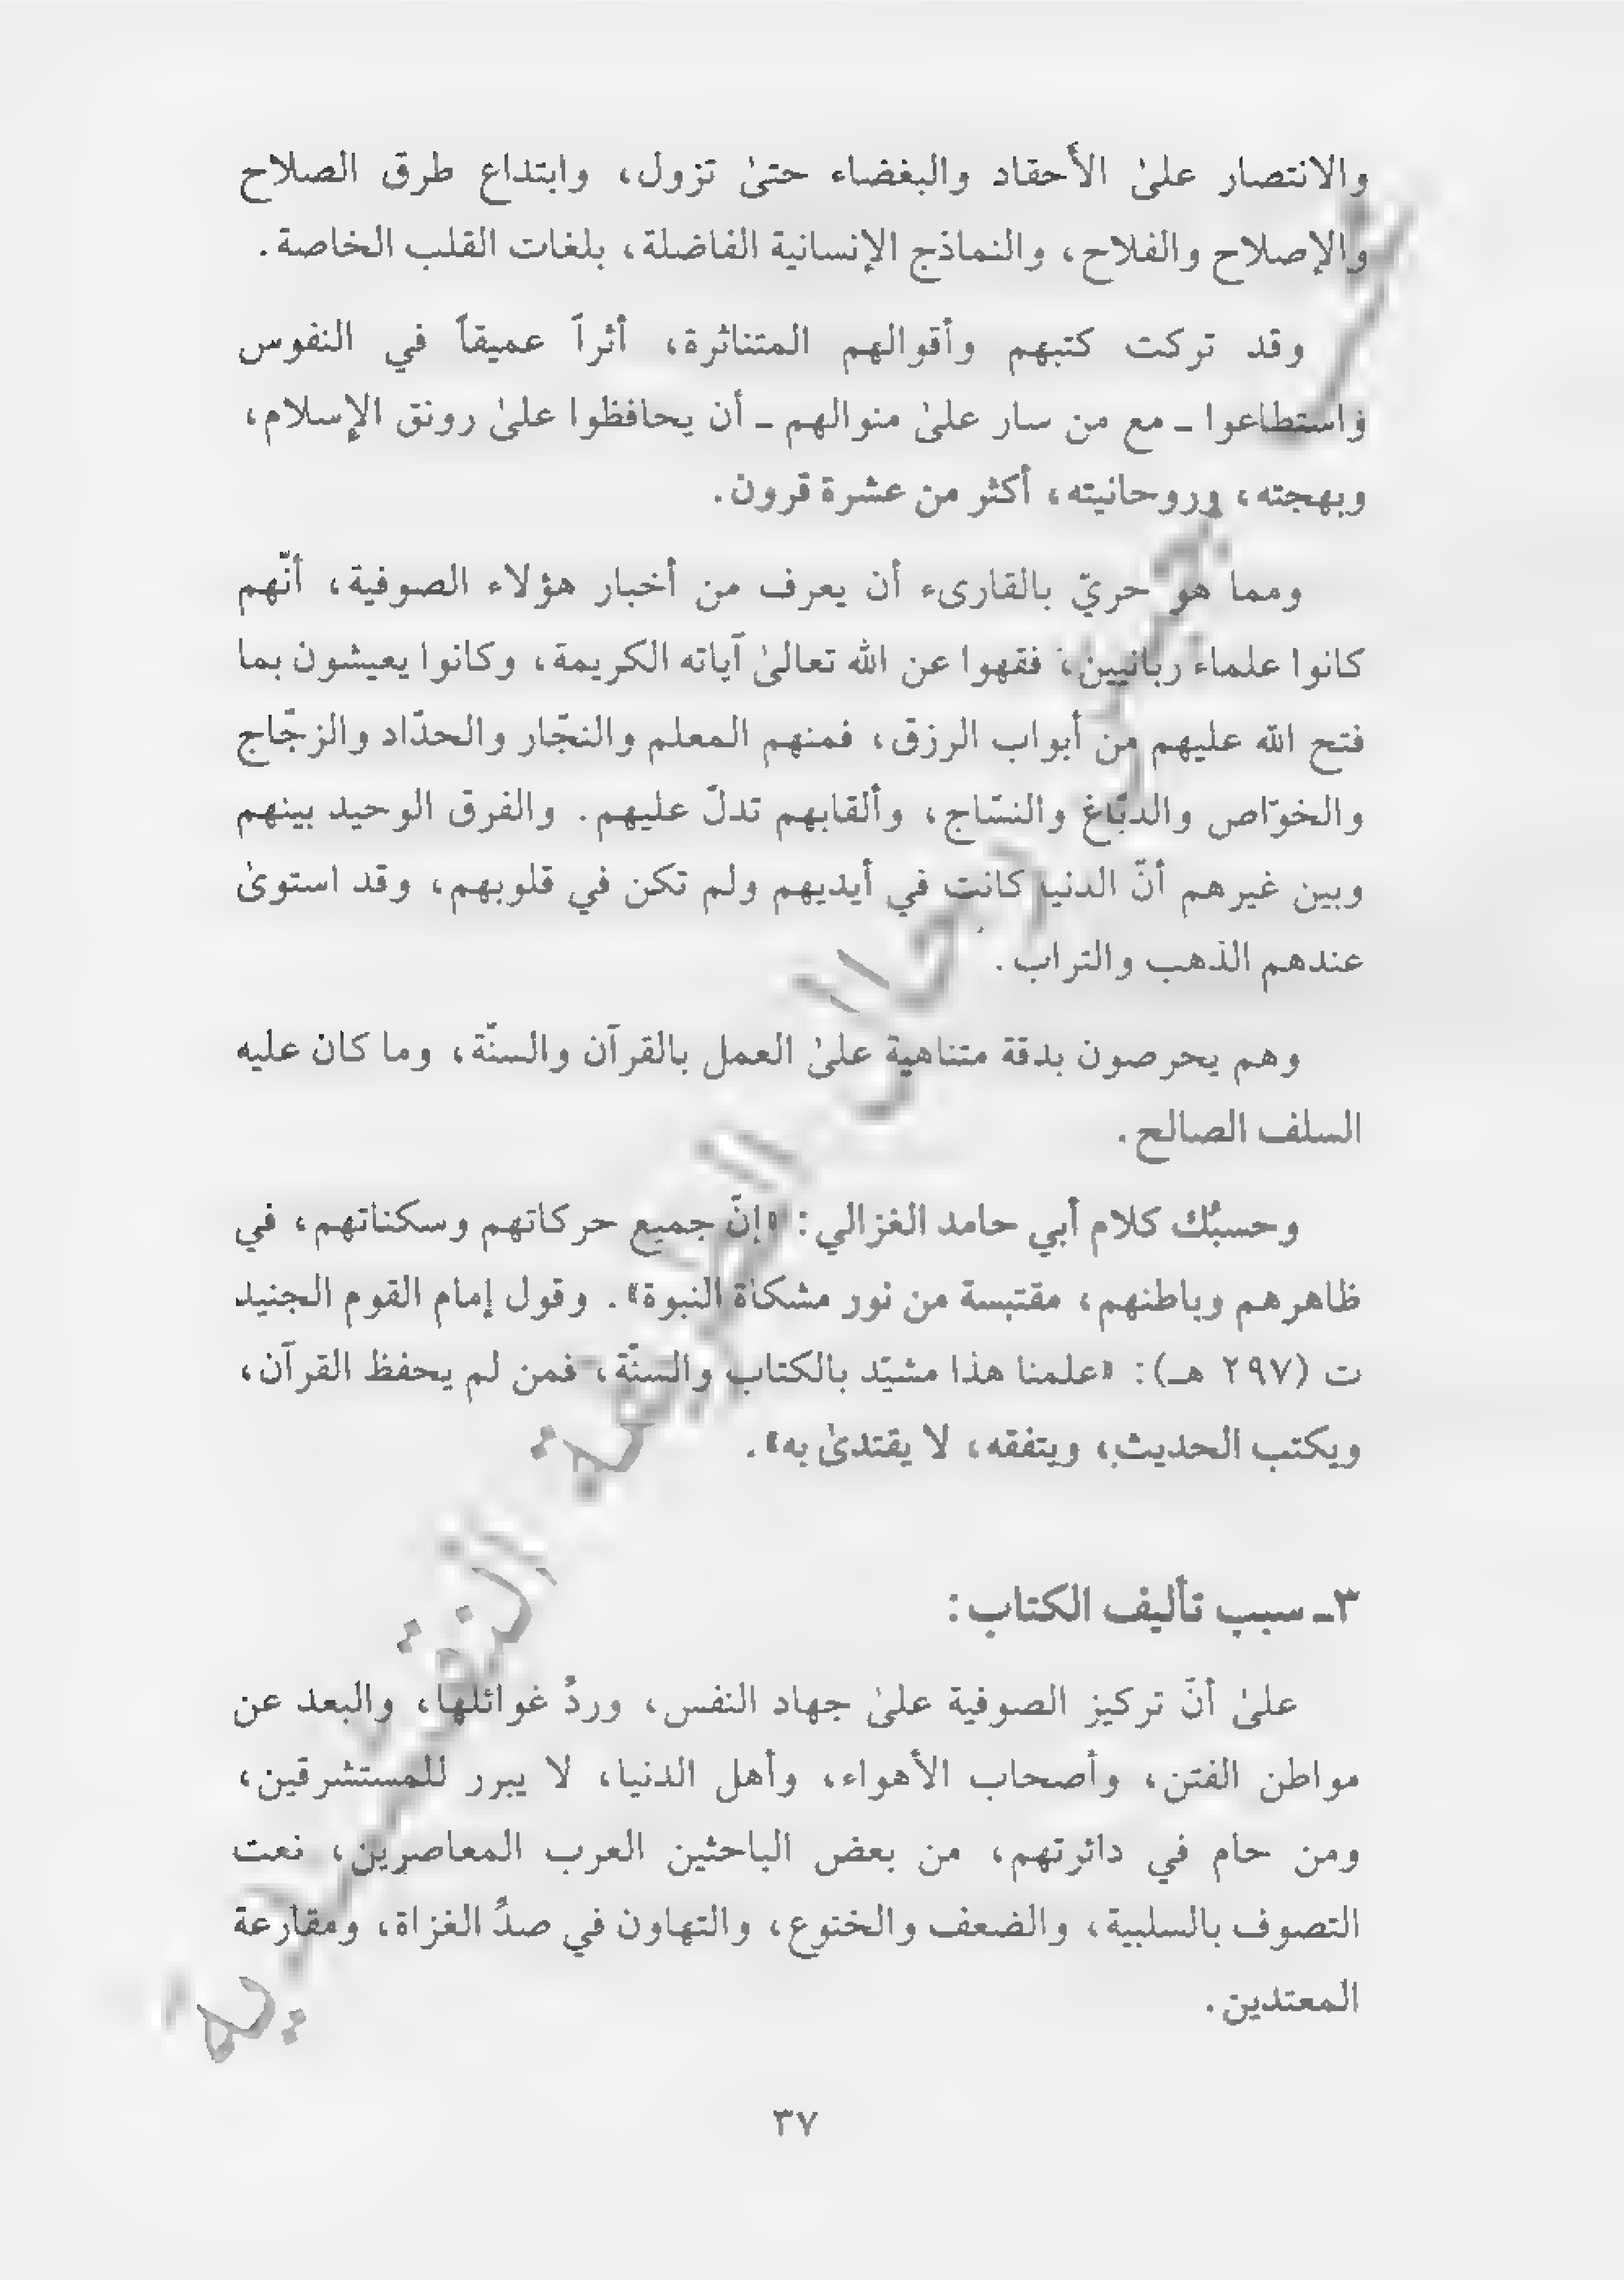 والانتصار علىٰ الأحقاد والبغضاء حتىٰ تزول، وابتداع طرق الصلاح
والإصلاح والفلاح، والنماذج الإنسانية الفاضلة، بلغات القلب الخاصة.
وقد تركت كتبهم وأقوالهم المتناثرة، أثراً عميقاً في النفوس
واستطاعوا ـ مع من سار علىٰ منوالهم ـ أن يحافظوا علىٰ رونق الإسلام،
وبهجته، وروحانيته، أكثر من عشرة قرون.
ومما هو حريّ بالقارىء أن يعرف من أخبار هؤلاء الصوفية، أنّهم
كانوا علماء ربانيين، فقهوا عن الله تعالىٰ آياته الكريمة، وكانوا يعيشون بما
فتح الله عليهم من أبواب الرزق، فمنهم المعلم والنجّار والحدّاد والزجّاج
والخوّاص والدبّاغ والنسّاج، وألقابهم تدلّ عليهم. والفرق الوحيد بينهم
وبين غيرهم أنّ الدنيا كانت في أيديهم ولم تكن في قلوبهم، وقد استوىٰ
عندهم الذهب والتراب.
وهم يحرصون بدقة متناهية علىٰ العمل بالقرآن والسنّة، وما كان عليه
السلف الصالح.
وحسبُك كلام أبي حامد الغزالي: «إنّ جميع حركاتهم وسكناتهم، في
ظاهرهم وباطنهم، مقتبسة من نور مشكاة النبوة». وقول إمام القوم الجنيد
ت (٢٩٧ هـ): «علمنا هذا مشيّد بالكتاب والسنّة، فمن لم يحفظ القرآن،
ويكتب الحديث، ويتفقه، لا يقتدىٰ به».
٣ـ سبب تأليف الكتاب:
علىٰ أنّ تركيز الصوفية علىٰ جهاد النفس، وردِّ غوائلها، والبعد عن
مواطن الفتن، وأصحاب الأهواء، وأهل الدنيا، لا يبرر للمستشرقين،
ومن حام في دائرتهم، من بعض الباحثين العرب المعاصرين، نعت
التصوف بالسلبية، والضعف والخنوع، والتهاون في صدِّ الغزاة، ومقارعة
المعتدين.
٣٧